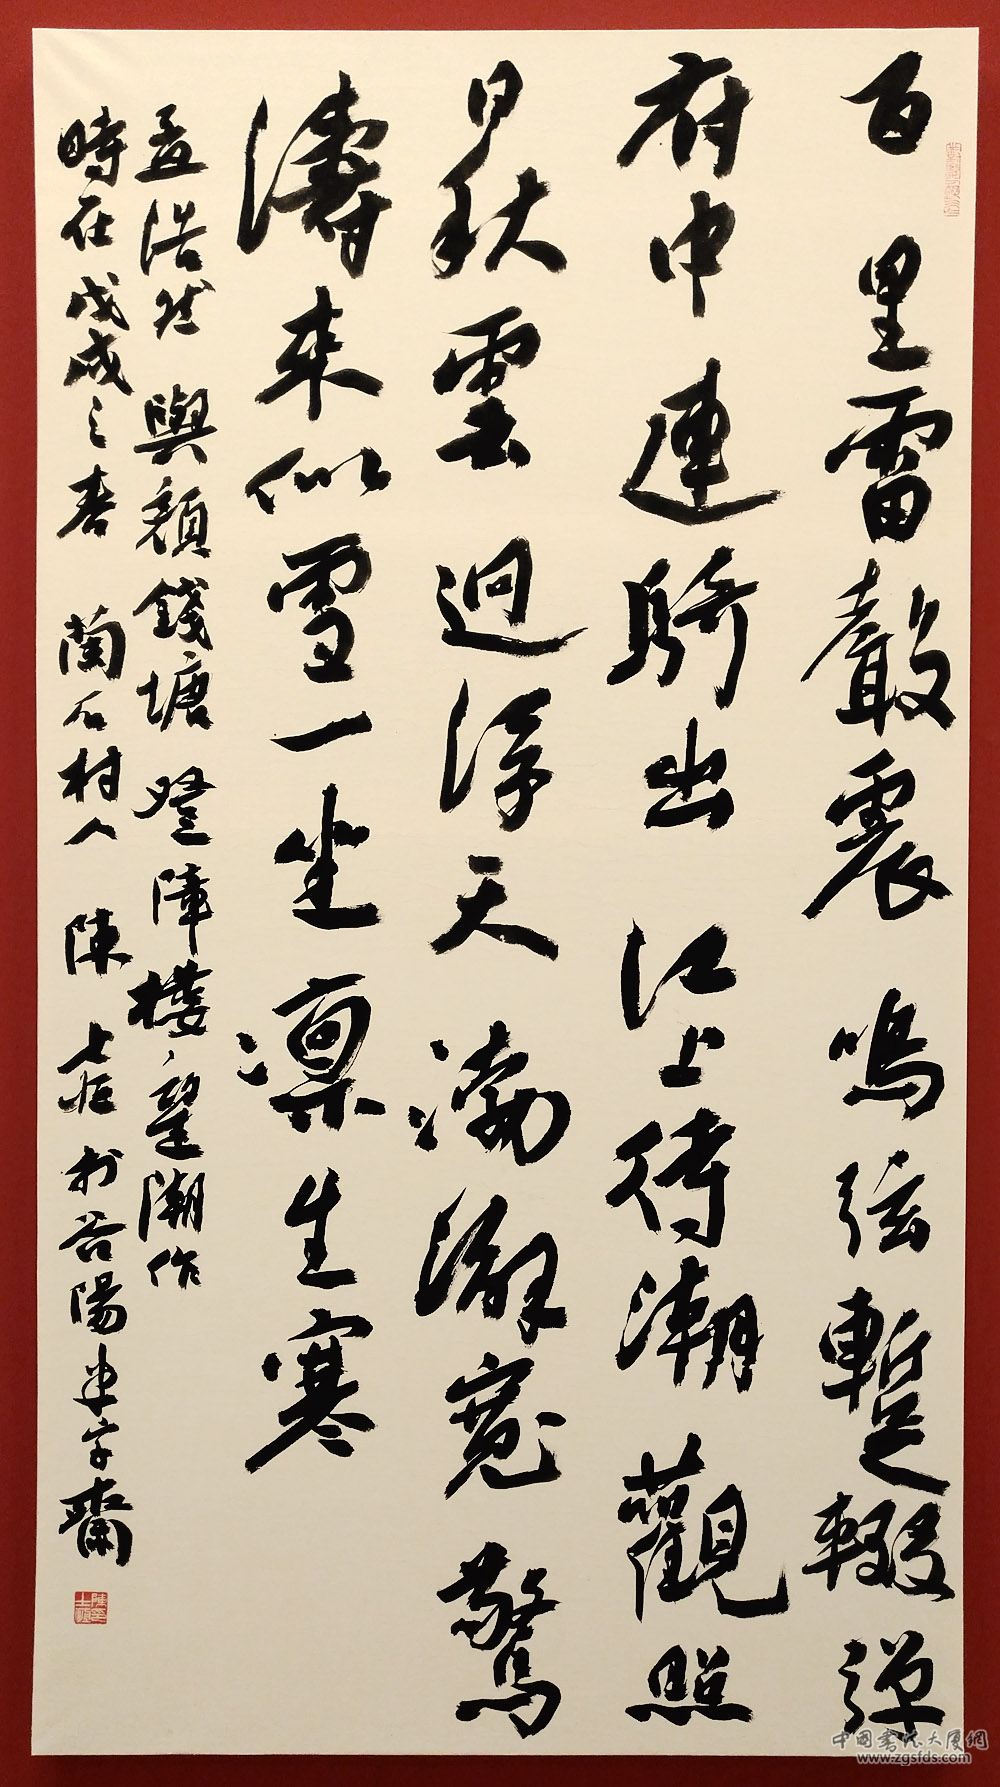 百里雷聲震鳴弦暫輟彈
府中連騎出江上待潮觀照
日秋雲迥浮天渤澥寬驚
濤來似雪一坐凜生寒
孟浩然與顏錢塘登障樓望潮作
時在戊戌之春蘭石村人陳士桓於谷陽半字齋
中国書法大厦網
www.zgsfds.com